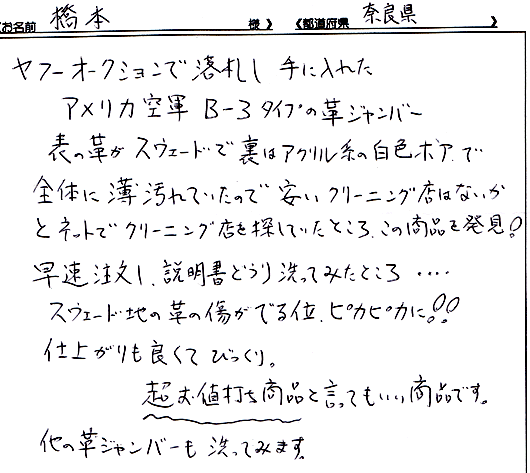 《お名前 橋本 様》 《都道府県 奈良県 》
ヤフーオークションで落札し 手に入れた
アメリカ空軍 B-3タイプの革ジャンバー
表の革がスウェードで裏はアクリル系の白色ボアで
全体に薄汚れていたので安いクリーニング店はないか
とネットでクリーニング店を探していたところ、この商品を発見!
早速注文し、説明書どうり洗ってみたところ ‥‥
スウェード地の革の傷がでる位、ピカピカに!!
仕上がりも良くてびっくり。
超お値打ち商品と言ってもいい商品です。
他の革ジャンバーも洗ってみます。